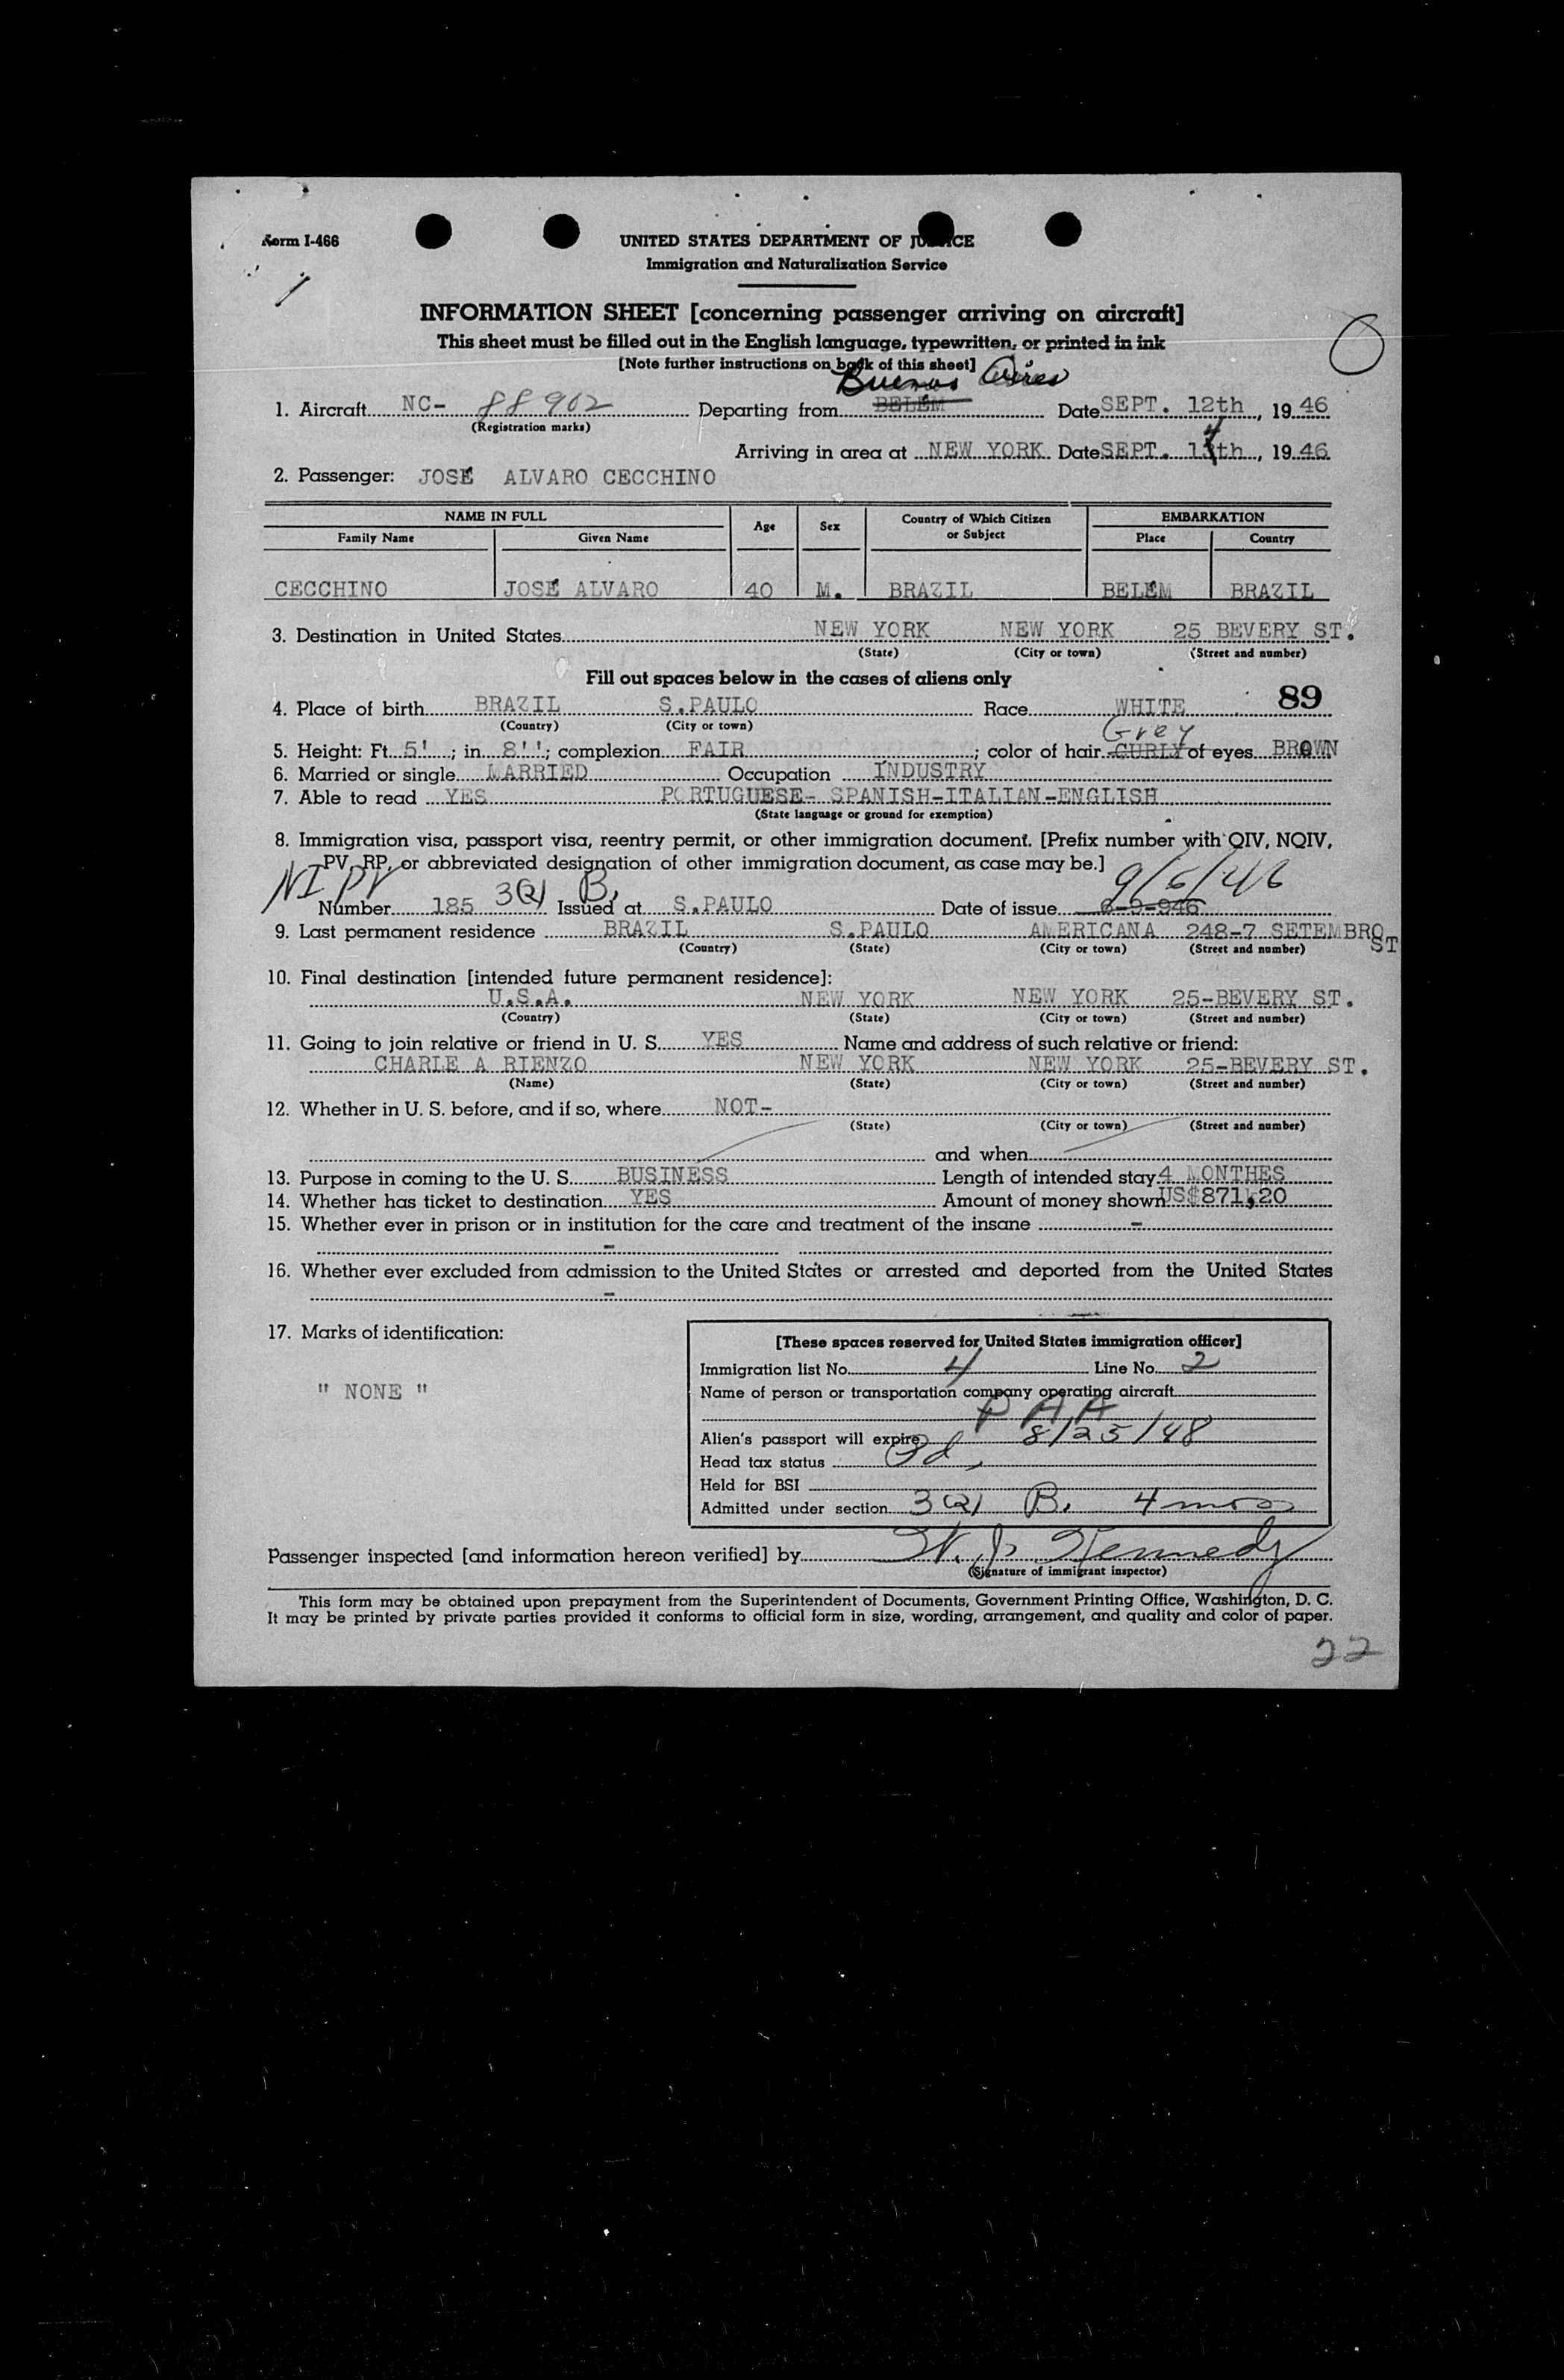 Form I-466
UNITED STATES DEPARTMENT OF JUSTICE
Immigration and Naturalization Service
INFORMATION SHEET [concerning passenger arriving on aircraft]
This sheet must be filled out in the English language, typewritten, or printed in ink
[Note further instructions on back of this sheet]
Buenos Aires
1. Aircraft NC- 88902 Departing from BELÉM Date SEPT. 12th, 19 46
(Registration marks)
Arriving in area at NEW YORK Date SEPT. 14th, 19 46
2. Passenger: JOSÉ ALVARO CECCHINO
NAME IN FULL Age Sex Country of Which Citizen or Subject EMBARKATION
Family Name Given Name Place Country
CECCHINO JOSÉ ALVARO 40 M. BRAZIL BELÉM BRAZIL
3. Destination in United States NEW YORK NEW YORK 25 BEVERY ST.
(State) (City or town) (Street and number)
Fill out spaces below in the cases of aliens only
89
4. Place of birth BRAZIL S.PAULO Race WHITE
(Country) (City or town)
Grey
5. Height: Ft. 5'; in. 8''; complexion FAIR; color of hair CURLY of eyes BROWN
6. Married or single MARRIED Occupation INDUSTRY
7. Able to read YES PORTUGUESE- SPANISH-ITALIAN-ENGLISH
(State language or ground for exemption)
8. Immigration visa, passport visa, reentry permit, or other immigration document. [Prefix number with QIV, NQIV,
PV, RP, or abbreviated designation of other immigration document, as case may be.]
NI PV 3(2) B. 9/6/46
Number 185 Issued at S.PAULO Date of issue 6-9-946
9. Last permanent residence BRAZIL S.PAULO AMERICANA 248-7 SETEMBRO ST
(Country) (State) (City or town) (Street and number)
10. Final destination [intended future permanent residence]:
U.S.A. NEW YORK NEW YORK 25-BEVERY ST.
(Country) (State) (City or town) (Street and number)
11. Going to join relative or friend in U. S. YES Name and address of such relative or friend:
CHARLE A RIENZO NEW YORK NEW YORK 25-BEVERY ST.
(Name) (State) (City or town) (Street and number)
12. Whether in U. S. before, and if so, where NOT-
(State) (City or town) (Street and number)
and when
13. Purpose in coming to the U. S. BUSINESS Length of intended stay 4 MONTHES
14. Whether has ticket to destination YES Amount of money shown US$871,20
15. Whether ever in prison or in institution for the care and treatment of the insane -
-
16. Whether ever excluded from admission to the United States or arrested and deported from the United States
-
17. Marks of identification:
" NONE "
[These spaces reserved for United States immigration officer]
Immigration list No. 4 Line No. 2
Name of person or transportation company operating aircraft
P A A
Alien's passport will expire 8/25/48
Head tax status Pd,
Held for BSI
Admitted under section 3(2) B. 4 mos
Passenger inspected [and information hereon verified] by W. J. Kennedy
(Signature of immigrant inspector)
This form may be obtained upon prepayment from the Superintendent of Documents, Government Printing Office, Washington, D. C.
It may be printed by private parties provided it conforms to official form in size, wording, arrangement, and quality and color of paper.
22